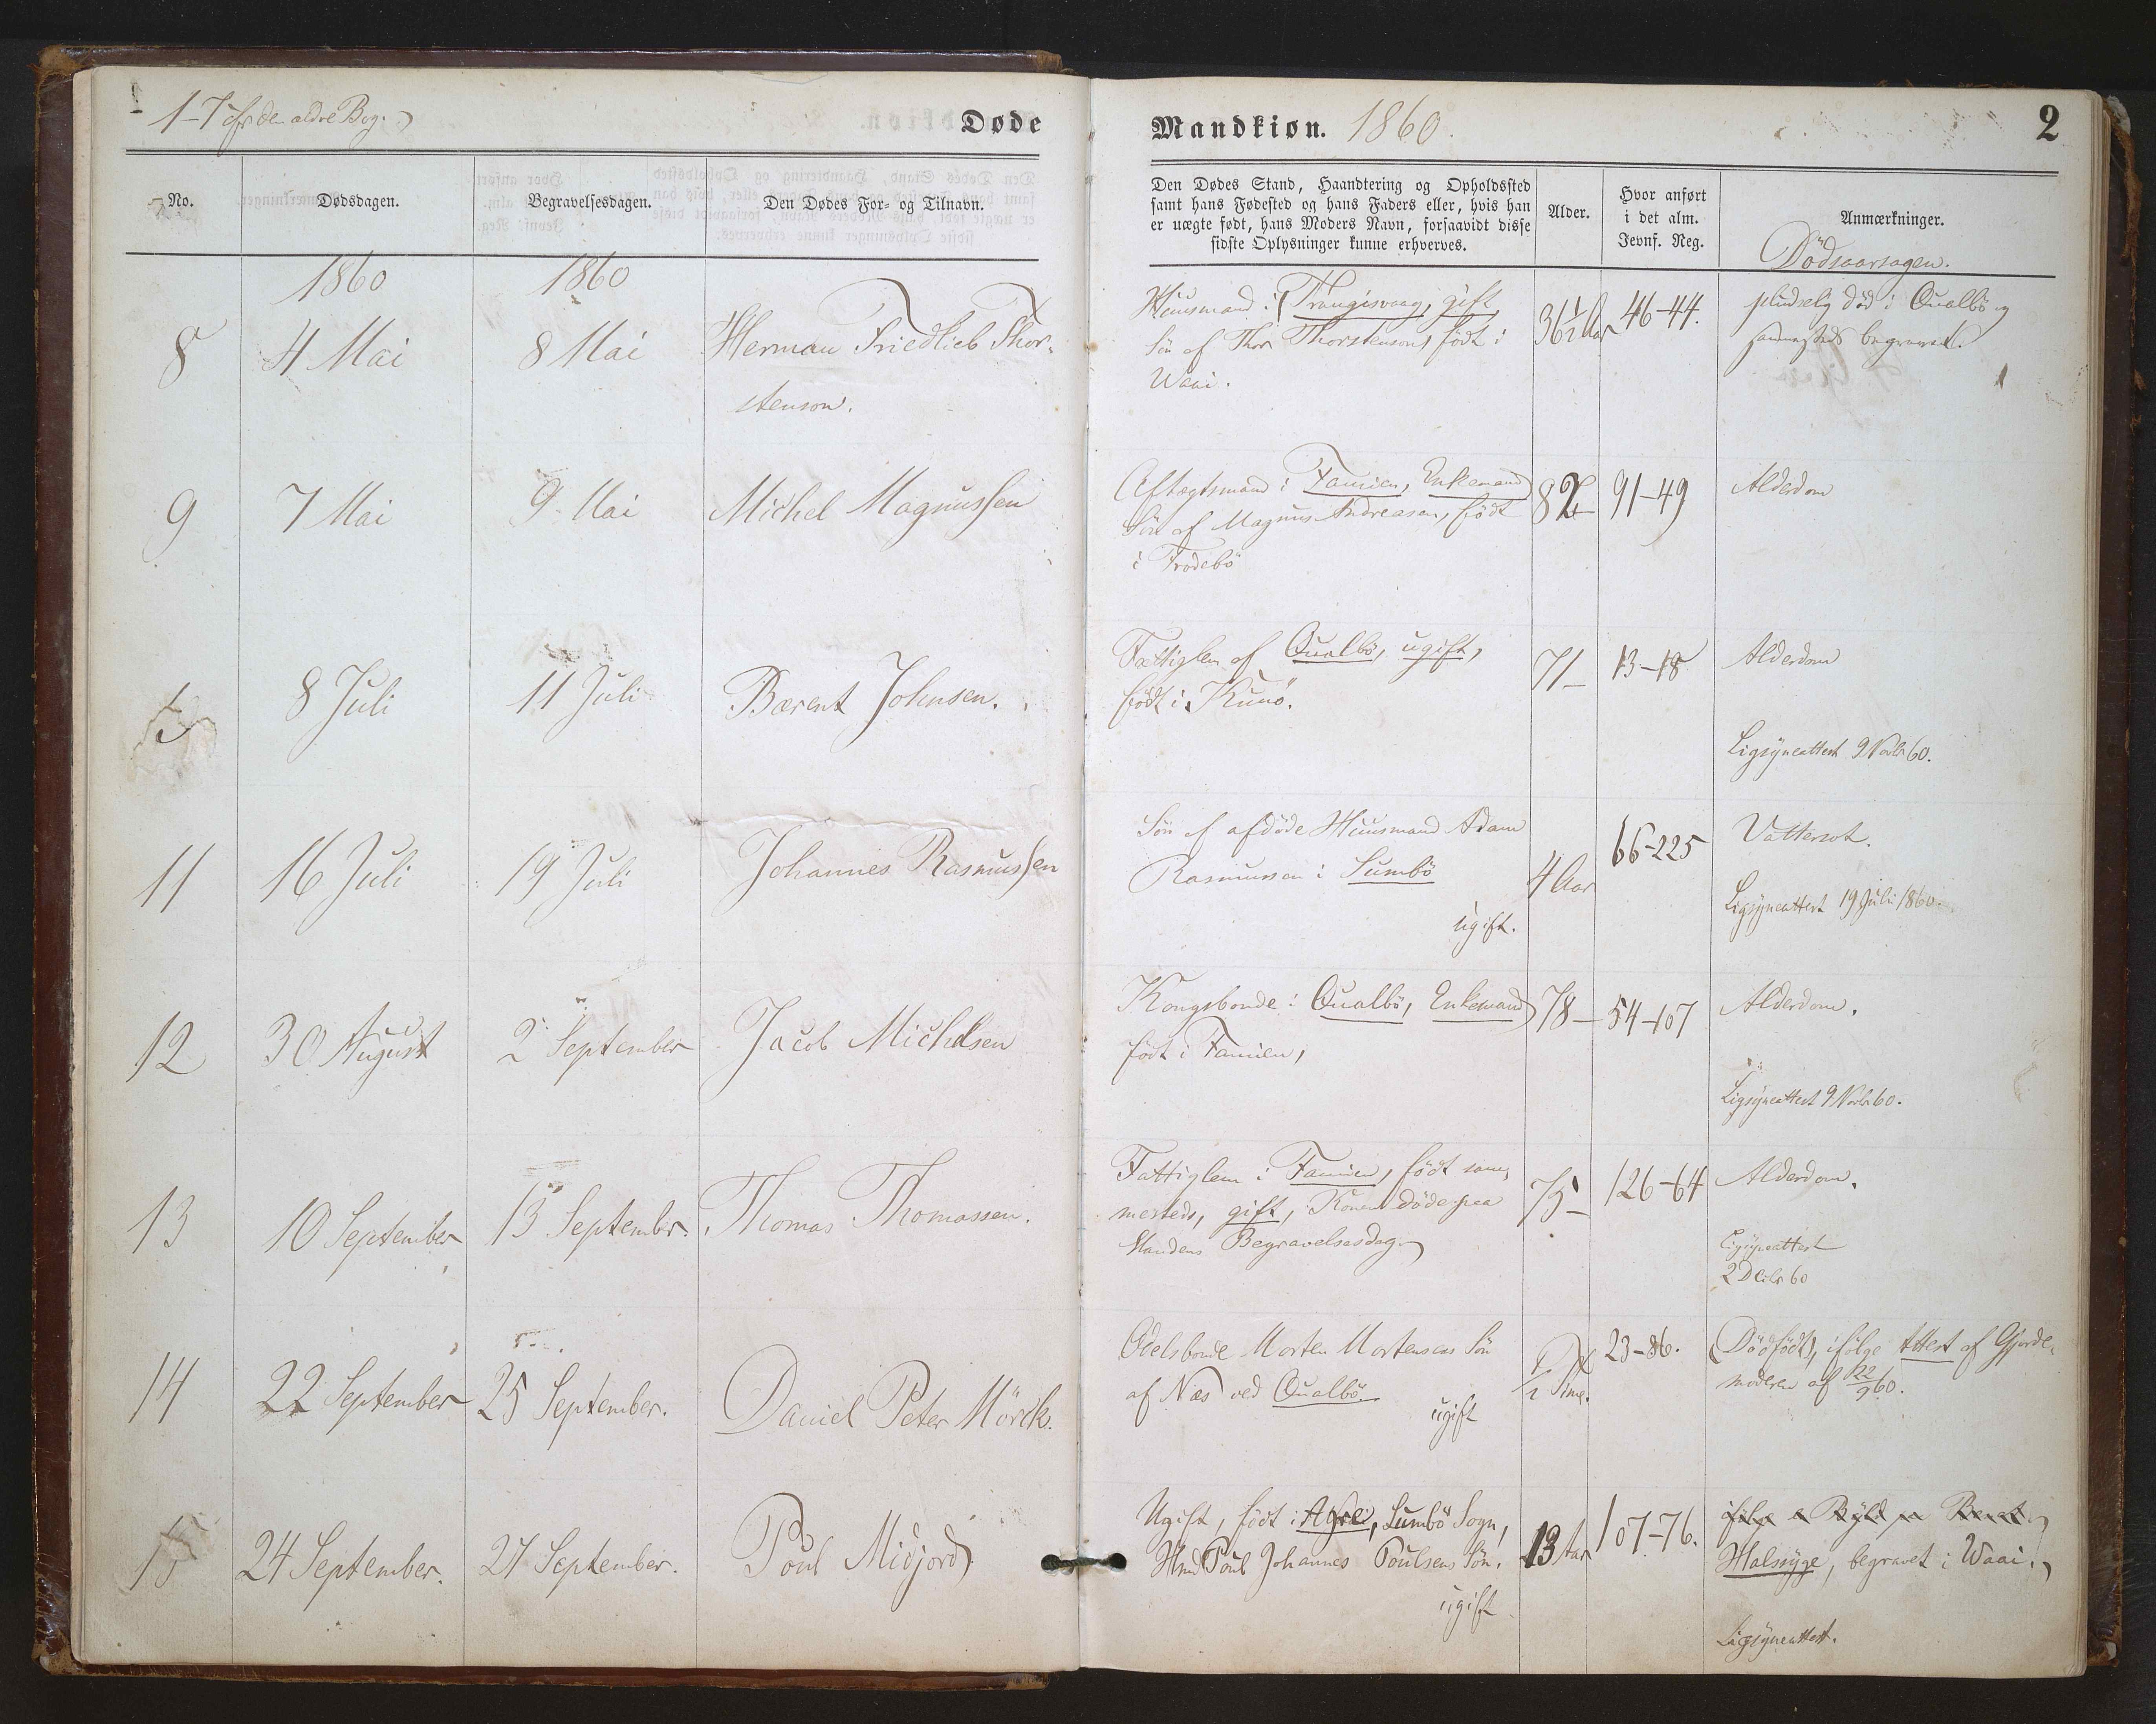 1-7 cfr den ældre Bog.
Døde
Mandkiøn. 1860.
2
No.
Dødsdagen.
Begravelsesdagen.
Den Dødes For- og Tilnavn.
Den Dødes Stand, Haandtering og Opholdssted
samt hans Fødested og hans Faders eller, hvis han
er uægte født, hans Moders Navn, forsaavidt disse
sidste Oplysninger kunne erhverves.
Alder.
Hvor anført
i det alm.
Jevnf. Reg.
Anmærkninger.
Dödsaarsagen.
1860
1860
8
4 Mai
8 Mai
Herman Friedlieb Thor-
stenson.
Huusmand i Trangisvaag, gift,
Sön af Thor Thorstenson, födt i
Waai.
36½ Aar
46-44.
pludselig död i Qualbö og
sammesteds begravet.
9
7 Mai
9 Mai
Michel Magnussen
Aftægtsmand i Famien, Enkemand
Sön af Magnus Andreasen, födt
i Frodebö
82
91-49
Alderdom
8 Juli
11 Juli
Bærent Johnsen.
Fattiglem af Qualbö, ugift,
födt i Kunö.
71
13-18
Alderdom
Ligsyneattest 9 Novbr 60.
11
16 Juli
19 Juli
Johannes Rasmussen
Sön af afdöde Huusmand Adam
Rasmussen i Sumbö
ugift.
4 Aar
66-225
Vattersot.
Ligsyneattest 19 Juli 1860.
12
30 August
2 September
Jacob Michelsen
Kongsbonde i Qualbö, Enkemand
födt i Famien,
78
54-107
Alderdom.
Ligsyneattest 9 Novbr 60.
13
10 September
13 September
Thomas Thomassen.
Fattiglem i Famien, födt sam-
mesteds, gift, Konen döde paa
Mandens Begravelsesdag.
75
126-64
Alderdom.
Ligsyneattest
2 Dcbr 60
14
22 September
25 September.
Daniel Peter Mörck.
Odelsbonde Morten Mortensens Sön
af Næs ved Qualbö
ugift
½ Time.
23-86.
(Dödfödt), ifölge Attest af Gjorde-
moderen af 22/9 60.
15
24 September.
27 September.
Poul Midjord
Ugift, födt i Agre, Sumbö Sogn,
Hmd Poul Johannes Poulsens Sön.
ugift
13 Aar
107-76.
ifölge Byld Benet
Halssyge, begravet i Waai.
Ligsyneattest.